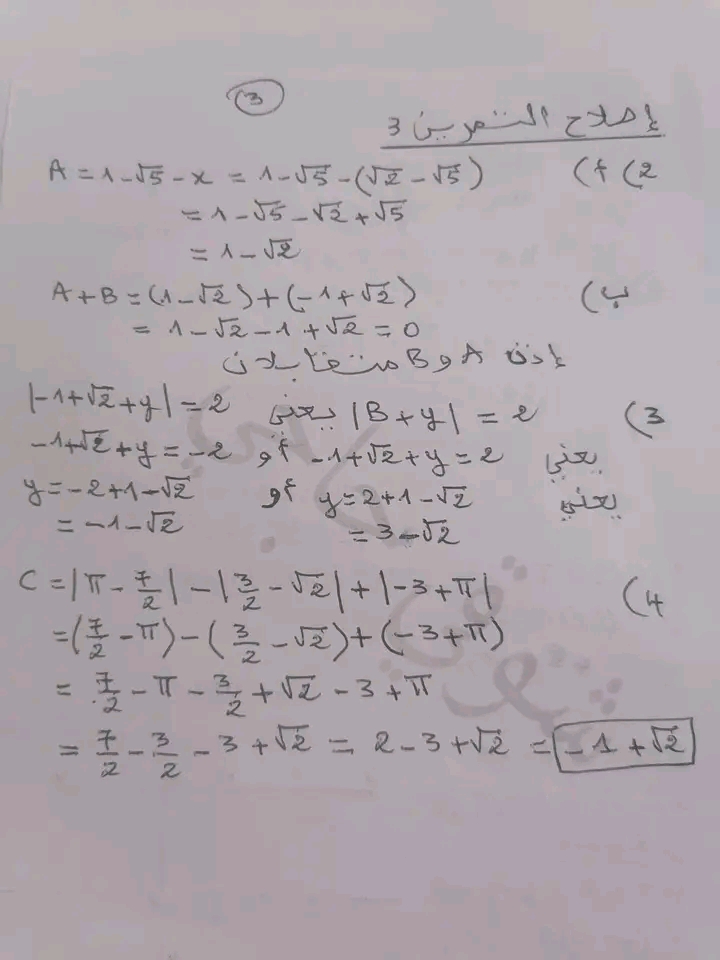 3
إصلاح التمرين 3
2) أ) A = 1 - √5 - x = 1 - √5 - (√2 - √5)
= 1 - √5 - √2 + √5
= 1 - √2
ب) A + B = (1 - √2) + (-1 + √2)
= 1 - √2 - 1 + √2 = 0
إذن A و B متقابلان
3) |B + y| = 2 يعني |-1 + √2 + y| = 2
يعني -1 + √2 + y = 2 أو -1 + √2 + y = -2
يعني y = 2 + 1 - √2 أو y = -2 + 1 - √2
= 3 - √2 = -1 - √2
4) C = |π - 7/2| - |3/2 - √2| + |-3 + π|
= (7/2 - π) - (3/2 - √2) + (-3 + π)
= 7/2 - π - 3/2 + √2 - 3 + π
= 7/2 - 3/2 - 3 + √2 = 2 - 3 + √2 = -1 + √2